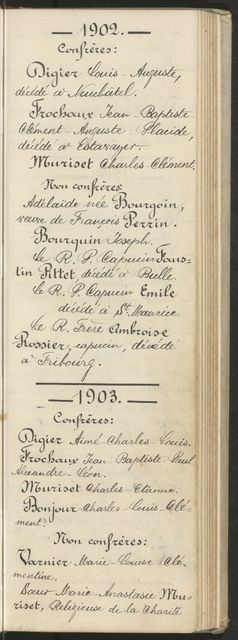 — 1902. —
Confrères:
Digier Louis-Auguste,
décédé à Neuchâtel.
Frochaux Jean-Baptiste
Clément-Auguste Placide,
décédé à Estavayer.
Muriset Charles-Clément.
Non confrères
Adélaïde née Bourgoin,
veuve de François Perrin.
Bourquin Joseph.
Le R. P. Capucin Fous-
tin Pittet décédé à Bulle.
Le R. P. Capucin Emile
décédé à St. Maurice.
Le R. Frère Ambroise
Rossier, capucin, décédé
à Fribourg.
— 1903. —
Confrères:
Digier Aimé-Charles-Louis.
Frochaux Jean-Baptiste-Paul
Alexandre-Léon.
Muriset Charles-Etienne.
Bonjour Charles-Louis-Clé-
ment.
Non confrères:
Varnier Marie-Louise-Clé-
mentine.
Sœur Marie-Anastasie Mu-
riset, Religieuse de la Charité